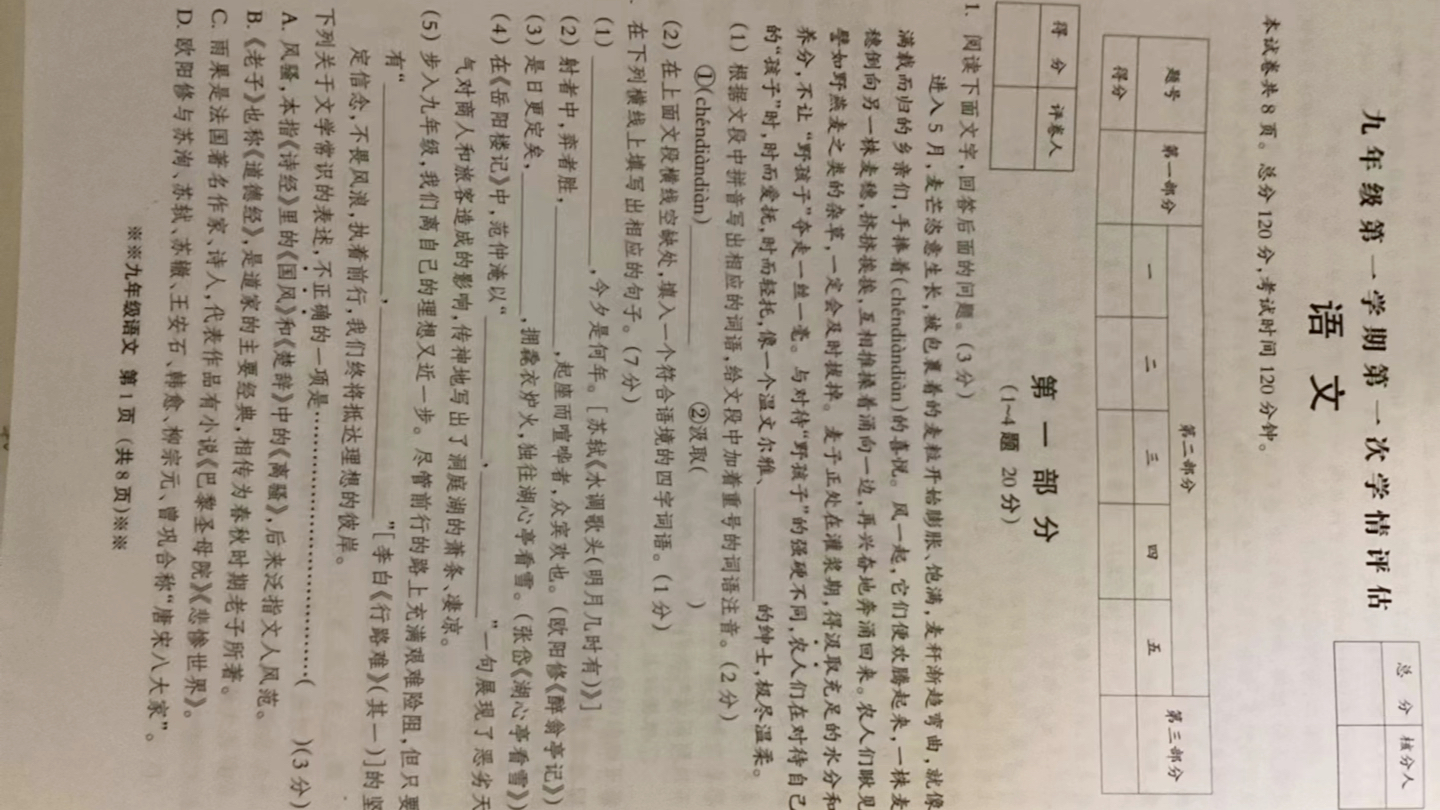 九年级第一学期第一次学情评估
语 文
总 分 核分人
本试卷共8页。总分120分,考试时间120分钟。
题号 第一部分 第二部分 第三部分
一 二 三 四 五
得分
第 一 部 分
(1~4题 20分)
得 分 评卷人
1. 阅读下面文字,回答后面的问题。(3分)
进入5月,麦芒恣意生长,被包裹着的麦粒开始膨胀、饱满,麦秆渐趋弯曲,就像
满载而归的乡亲们,手捧着(chéndiàndiàn)的喜悦。风一起,它们便欢腾起来,一株麦
穗倒向另一株麦穗,挤挤挨挨,互相推搡着涌向一边,再兴奋地奔涌回来。农人们瞅见
譬如野燕麦之类的杂草,一定会及时拔掉。麦子正处在灌浆期,得汲取充足的水分和
养分,不让“野孩子”夺走一丝一毫。与对待“野孩子”的强硬不同,农人们在对待自己
的“孩子”时,时而爱抚,时而轻托,像一个温文尔雅、________的绅士,极尽温柔。
(1)根据文段中拼音写出相应的词语,给文段中加着重号的词语注音。(2分)
①(chéndiàndiàn)________ ②汲取( )
(2)在上面文段横线空缺处,填入一个符合语境的四字词语。(1分)
在下列横线上填写出相应的句子。(7分)
(1)________________,今夕是何年。[苏轼《水调歌头(明月几时有)》]
(2)射者中,弈者胜,____________,起座而喧哗者,众宾欢也。(欧阳修《醉翁亭记》)
(3)是日更定矣,____________,拥毳衣炉火,独往湖心亭看雪。(张岱《湖心亭看雪》)
(4)在《岳阳楼记》中,范仲淹以“____________,____________”一句展现了恶劣天
气对商人和旅客造成的影响,传神地写出了洞庭湖的萧条、凄凉。
(5)步入九年级,我们离自己的理想又近一步。尽管前行的路上充满艰难险阻,但只要
有“________________,________________”[李白《行路难》(其一)]的坚
定信念,不畏风浪,执着前行,我们终将抵达理想的彼岸。
下列关于文学常识的表述,不正确的一项是……………………………( )(3分)
A. 风骚,本指《诗经》里的《国风》和《楚辞》中的《离骚》,后来泛指文人风范。
B.《老子》也称《道德经》,是道家的主要经典,相传为春秋时期老子所著。
C. 雨果是法国著名作家、诗人,代表作品有小说《巴黎圣母院》《悲惨世界》。
D. 欧阳修与苏洵、苏轼、苏辙、王安石、韩愈、柳宗元、曾巩合称“唐宋八大家”。
※※九年级语文 第1页(共8页)※※